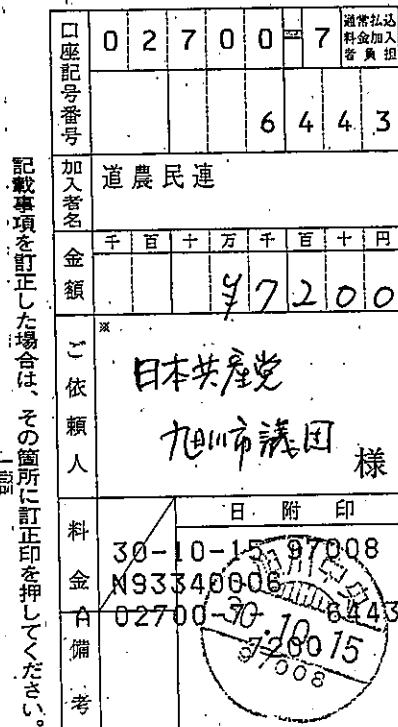 口座記号番号
0 2 7 0 0 - 7
通常払込
料金加入
者負担
6 4 4 3
加入者名
道農民連
金額
千 百 十 万 千 百 十 円
¥7200
※
ご依頼人
日本共産党
旭川市議団
様
料金
日附印
30-10-15 97008
N93340006
A 02700-7 6443
7200
旭川中央
30.10.15
97008
備考
記載事項を訂正した場合は、その箇所に訂正印を押してください。